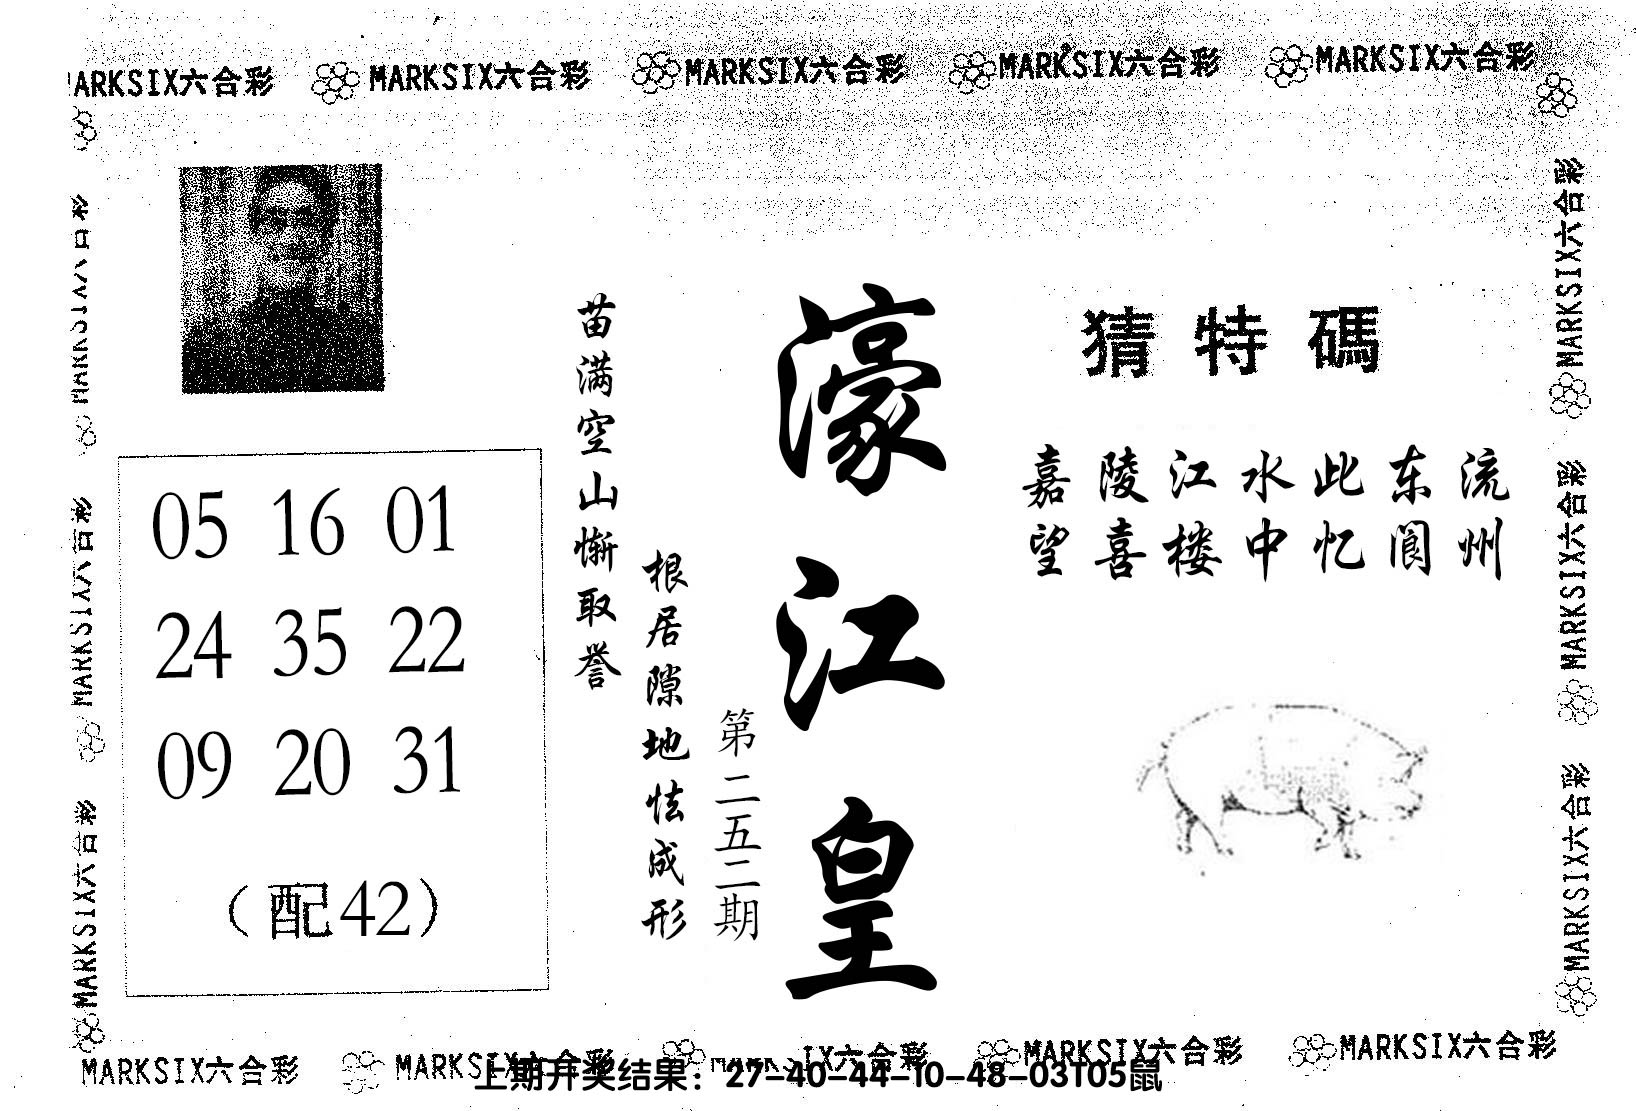 MARKSIX六合彩 MARKSIX六合彩 MARKSIX六合彩 MARKSIX六合彩 MARKSIX六合彩
猜特碼
嘉陵江水此东流
望喜楼中忆阆州
濠江皇
第二五二期
根居隙地怯成形
苗满空山惭取誉
05 16 01
24 35 22
09 20 31
（配42）
MARKSIX六合彩
MARKSIX六合彩
MARKSIX六合彩
MARKSIX六合彩
MARKSIX六合彩
MARKSIX六合彩
MARKSIX六合彩 MARKSIX六合彩 六合彩 MARKSIX六合彩 MARKSIX六合彩
上期开奖结果：27-40-44-10-48-03T05鼠